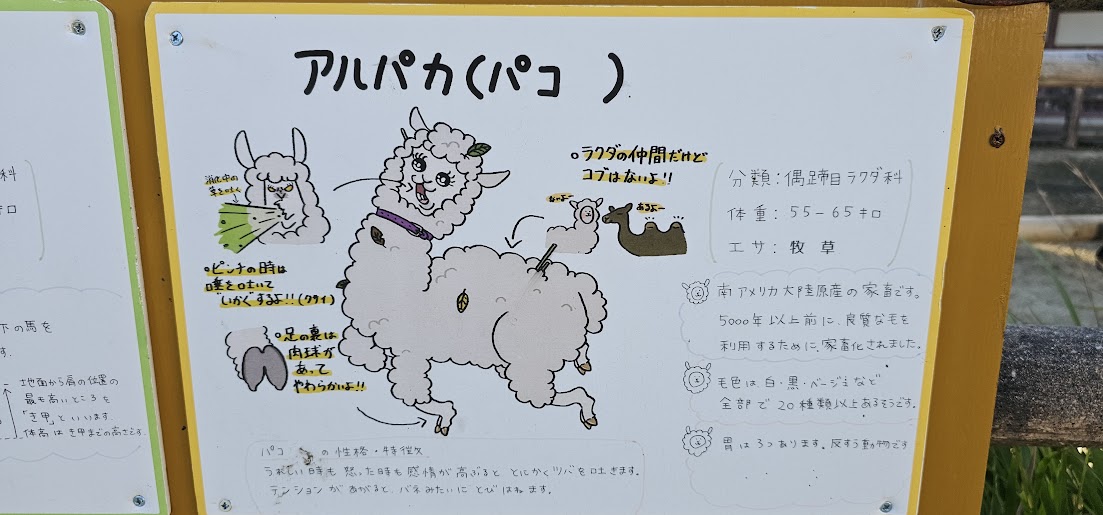 科
キロ
下の馬を
す.
地面から肩の位置の
最も高いところを
「き甲」といいます.
体高はき甲までの高さです.
アルパカ(パコ )
消化中の
草を吐く
ピンチの時は
唾を吐いて
いかくするよ!!(クサイ)
足の裏は
肉球が
あって
やわらかいよ!!
ラクダの仲間だけど
コブはないよ!!
ないよー
あるよー
分類:偶蹄目ラクダ科
体重:55-65キロ
エサ:牧草
南アメリカ大陸原産の家畜です。
5000年以上前に、良質な毛を
利用するために、家畜化されました.
毛色は白・黒・ベージュなど
全部で20種類以上あるそうです.
胃は3つあります.反すう動物です
パコ の性格・特徴
うれしい時も怒った時も感情が高ぶると とにかくツバを吐きます.
テンションがあがると、バネみたいにとびはねます.